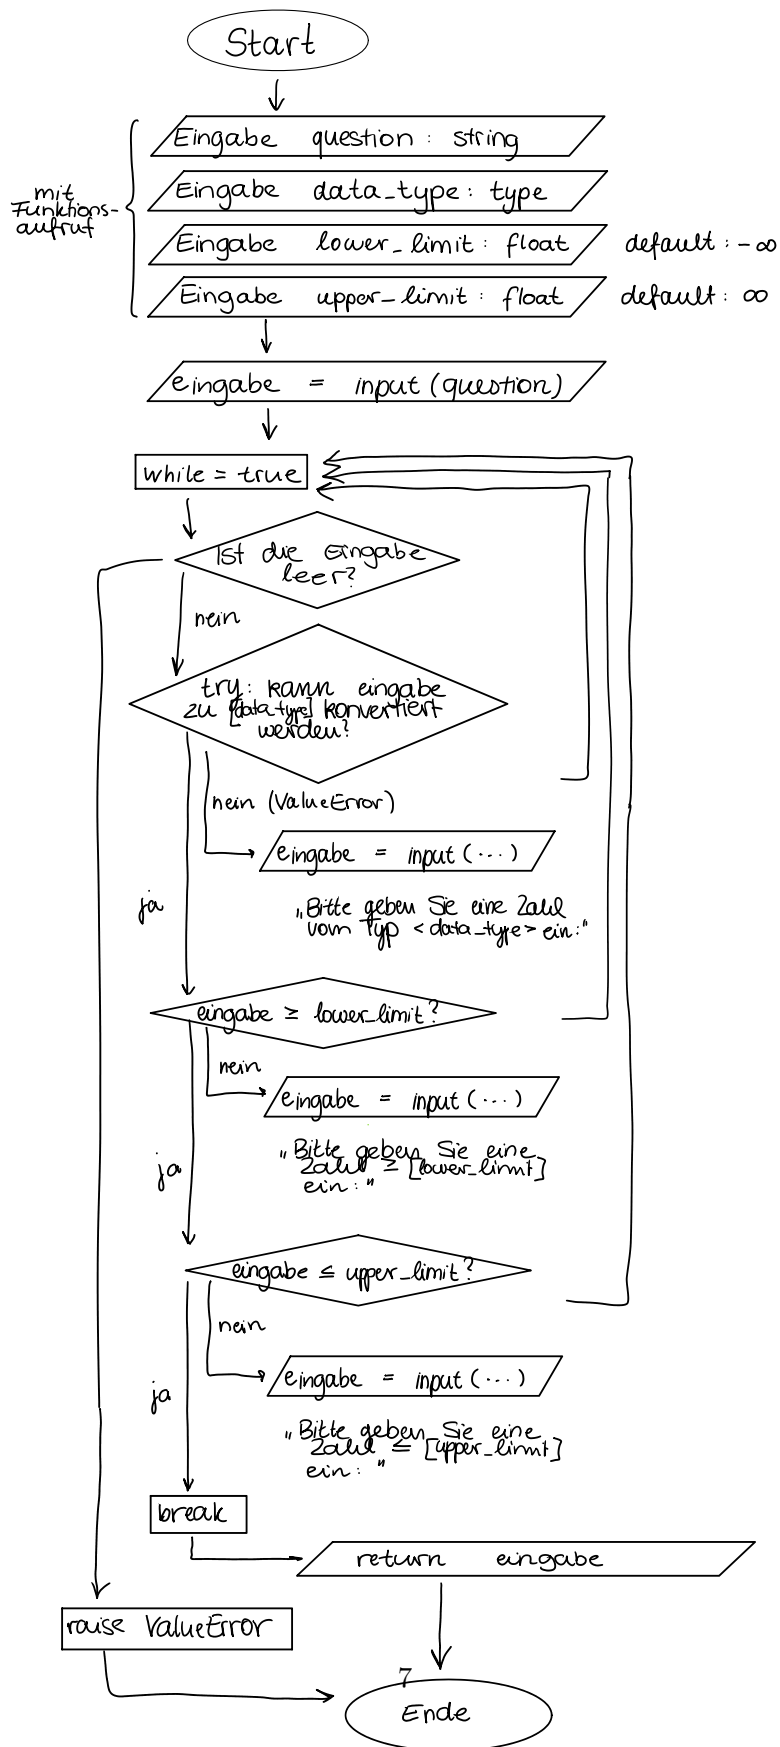 Start
Eingabe question : string
Eingabe data_type : type
mit
Funktions-
aufruf
Eingabe lower_limit : float default : -∞
Eingabe upper_limit : float default : ∞
eingabe = input (question)
while = true
Ist die Eingabe
leer?
nein
try: kann eingabe
zu [data_type] konvertiert
werden?
nein (ValueError)
eingabe = input (...)
ja
„Bitte geben Sie eine Zahl
vom Typ <data_type> ein:“
eingabe ≥ lower_limit?
nein
eingabe = input (...)
„Bitte geben Sie eine
Zahl ≥ [lower_limit]
ein:“
ja
eingabe ≤ upper_limit?
nein
eingabe = input (...)
ja
„Bitte geben Sie eine
Zahl ≤ [upper_limit]
ein: “
break
return eingabe
raise ValueError
7
Ende